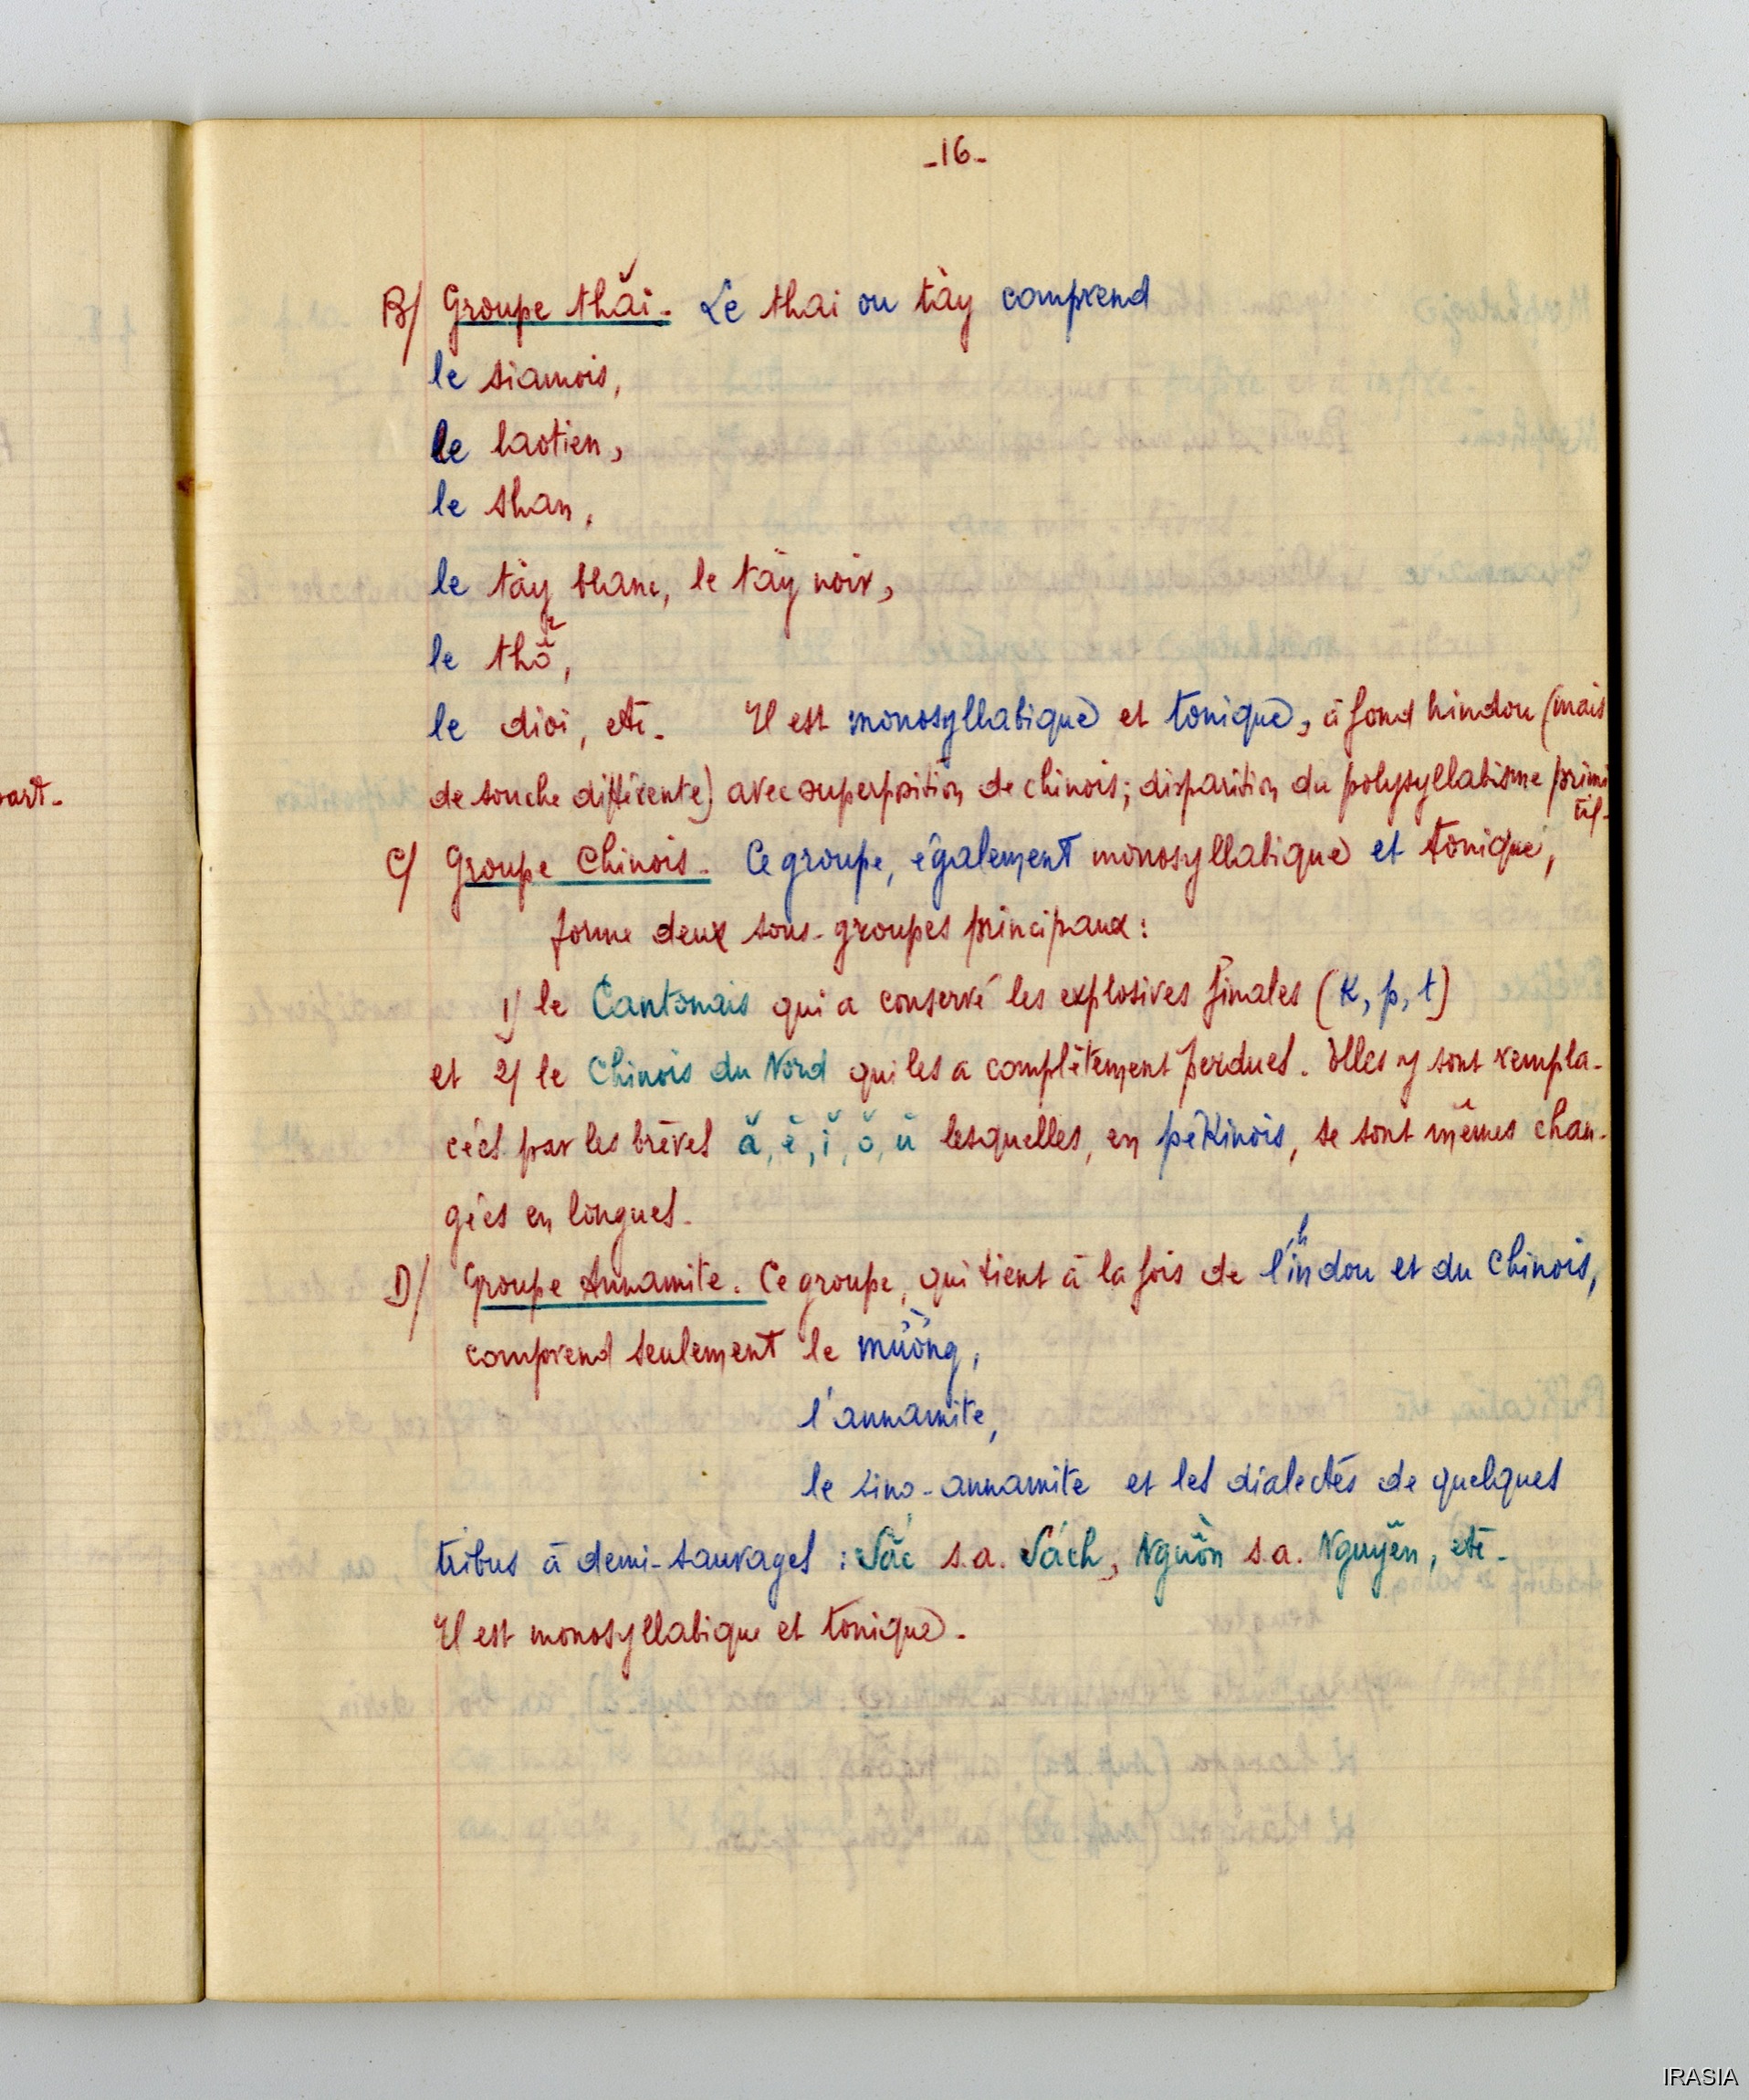 -16-
B/ Groupe thăi. Le thai ou tày comprend
le siamois,
le laotien,
le shan,
le tày blanc, le tày noir,
le thổ,
le dioi, etc. Il est monosyllabique et tonique, à fond hindou (mais
de souche différente) avec superposition de chinois; disparition du polysyllabisme primi
tif.
part.
C/ Groupe Chinois. Ce groupe, également monosyllabique et tonique,
forme deux sous-groupes principaux:
1/ le Cantonais qui a conservé les explosives finales (k, p, t)
et 2/ le Chinois du Nord qui les a complètement perdues. Elles y sont rempla-
cées par les brèves ă, ĕ, ĭ, ŏ, ŭ lesquelles, en pékinois, se sont mêmes chan-
gées en longues.
D/ Groupe Annamite. Ce groupe, qui tient à la fois de l'hindou et du Chinois,
comprend seulement le mường,
l'annamite,
le sino-annamite et les dialectes de quelques
tribus à demi-sauvages : Sắc s.a. Sách, Nguồn s.a. Nguyễn, etc.
Il est monosyllabique et tonique.
IRASIA